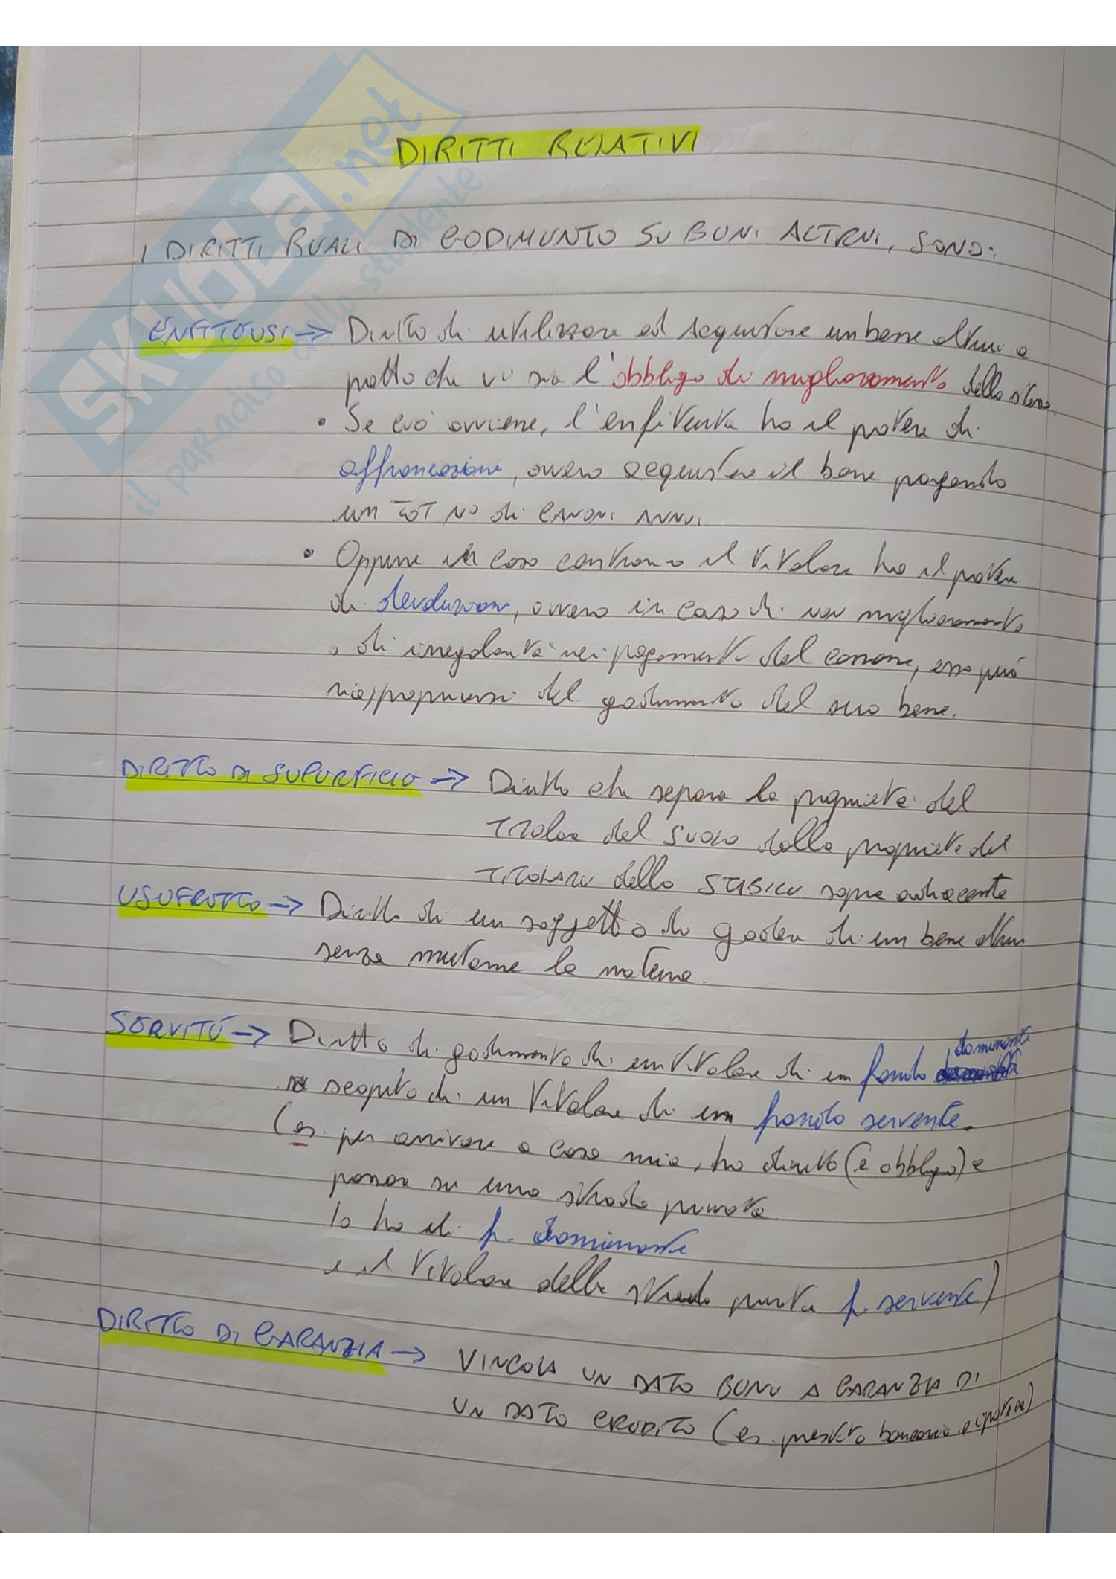 SKUOLA.net
il paradiso dello studente
DIRITTI RELATIVI
I DIRITTI REALI DI GODIMENTO SU BENI ALTRUI, SONO:
ENFITEUSI → Diritto di utilizzare ed acquistare un bene altrui a
patto che vi sia l'obbligo di miglioramento dello stesso.
• Se ciò avviene, l'enfiteuta ha il potere di
affrancazione, ovvero acquistare il bene pagando
un TOT N° di CANONI ANNUI.
• Oppure in caso contrario il titolare ha il potere
di devoluzione, ovvero in caso di non miglioramento
o di irregolarità nei pagamenti del canone, esso può
riappropriarsi del godimento del suo bene.
DIRITTO DI SUPERFICIE → Diritto che separa la proprietà del
titolare del suolo dalla proprietà del
TITOLARE dello STABILE sopra adiacente
USUFRUTTO → Diritto di un soggetto di godere di un bene altrui
senza mutarne la materia.
SERVITÙ → Diritto di godimento di un titolare di un fondo dominante
a scapito di un titolare di un fondo servente.
(es. per arrivare a casa mia, ho diritto (è obbligo) a
passare su una strada privata
Io ho il f. dominante
e il titolare della strada privata f. servente)
DIRITTO DI GARANZIA → VINCOLA UN DATO BENE A GARANZIA DI
UN DATO CREDITO (es. prestito bancario e ipoteca)